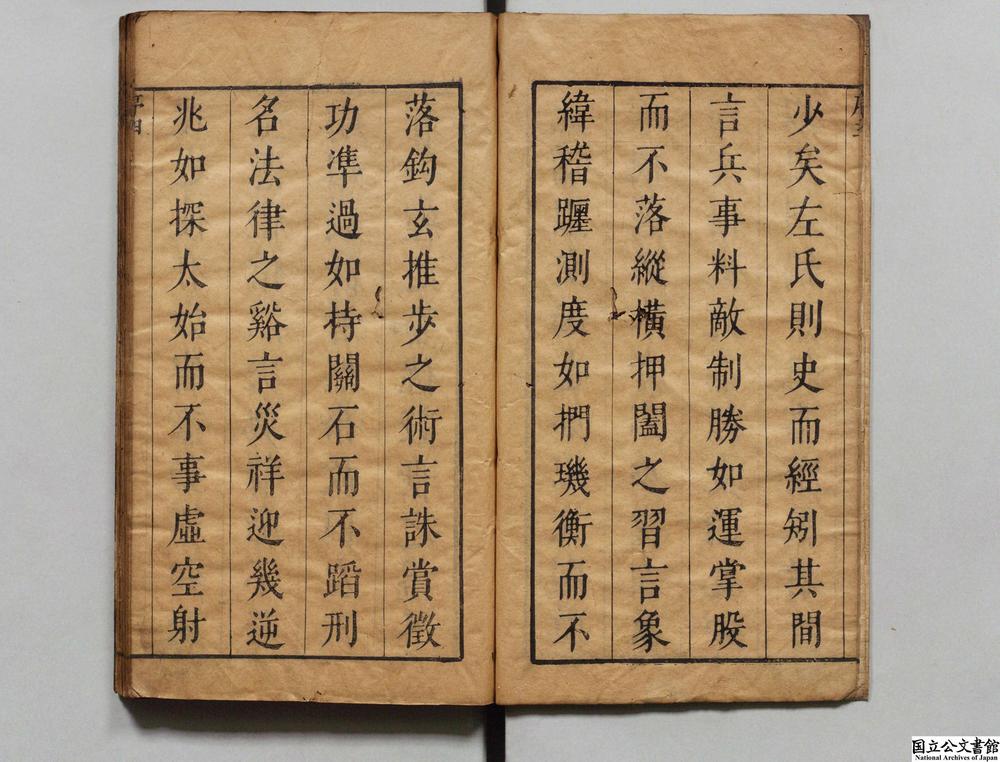 少矣左氏則史而經矧其間
言兵事料敵制勝如運掌股
而不落縱橫押闔之習言象
緯稽躔測度如捫璣衡而不
落鈎玄推步之術言誅賞徵
功準過如持關石而不蹈刑
名法律之谿言災祥迎幾逆
兆如探太始而不事虛空射
序四
国立公文書館
National Archives of Japan